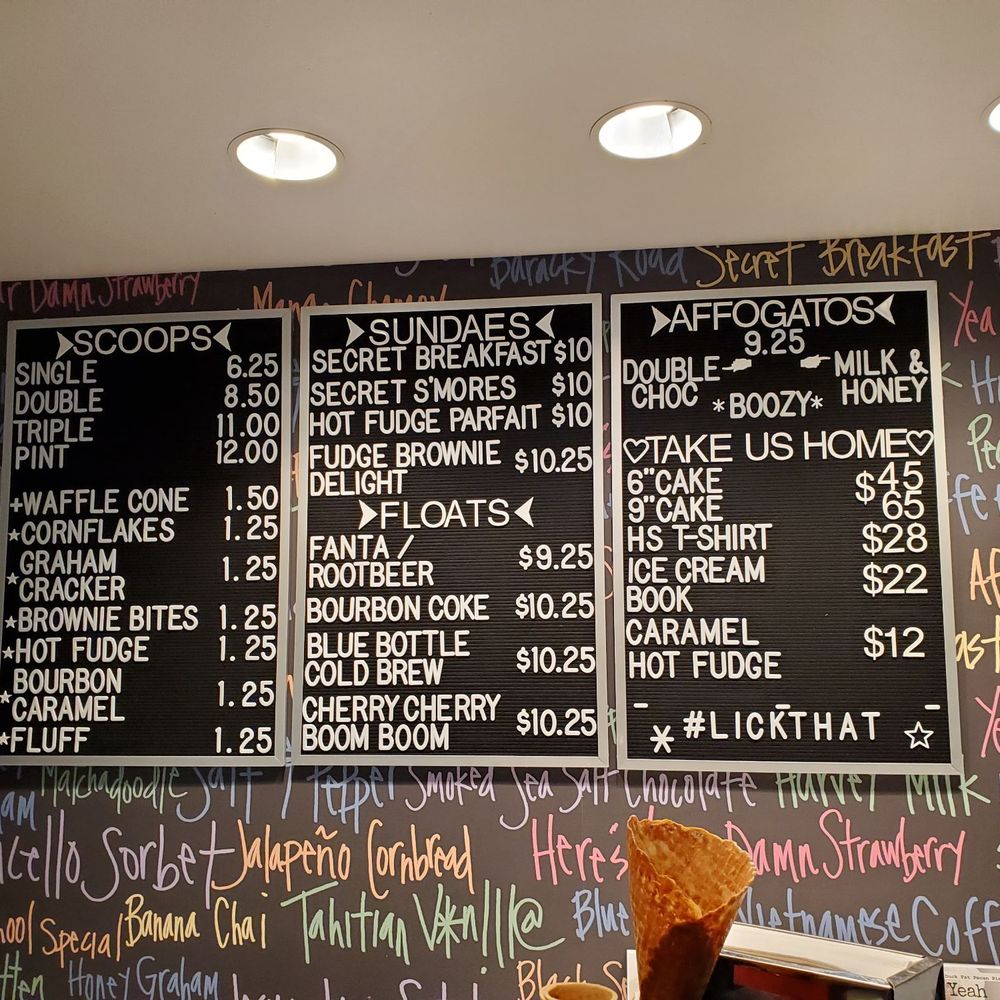 Damn Strawberry
Baracky Road
Secret Breakfast
SCOOPS
SINGLE 6.25
DOUBLE 8.50
TRIPLE 11.00
PINT 12.00
+WAFFLE CONE 1.50
★CORNFLAKES 1.25
★GRAHAM
CRACKER 1.25
★BROWNIE BITES 1.25
★HOT FUDGE 1.25
★BOURBON
CARAMEL 1.25
★FLUFF 1.25
SUNDAES
SECRET BREAKFAST $10
SECRET S'MORES $10
HOT FUDGE PARFAIT $10
FUDGE BROWNIE
DELIGHT $10.25
FLOATS
FANTA /
ROOTBEER $9.25
BOURBON COKE $10.25
BLUE BOTTLE
COLD BREW $10.25
CHERRY CHERRY
BOOM BOOM $10.25
AFFOGATOS
9.25
DOUBLE
CHOC
MILK &
HONEY
*BOOZY*
♡TAKE US HOME♡
6"CAKE $45
9"CAKE 65
HS T-SHIRT $28
ICE CREAM
BOOK $22
CARAMEL
HOT FUDGE $12
* #LICKTHAT ☆
Matchadoodle
Salt & Pepper
Smoked Sea Salt Chocolate
Harvey Milk
Sorbet
Jalapeño Cornbread
Here's
Damn Strawberry
Special
Banana Chai
Tahitian V*nill@
Blue
Vietnamese Coff
Honey Graham
Yeah